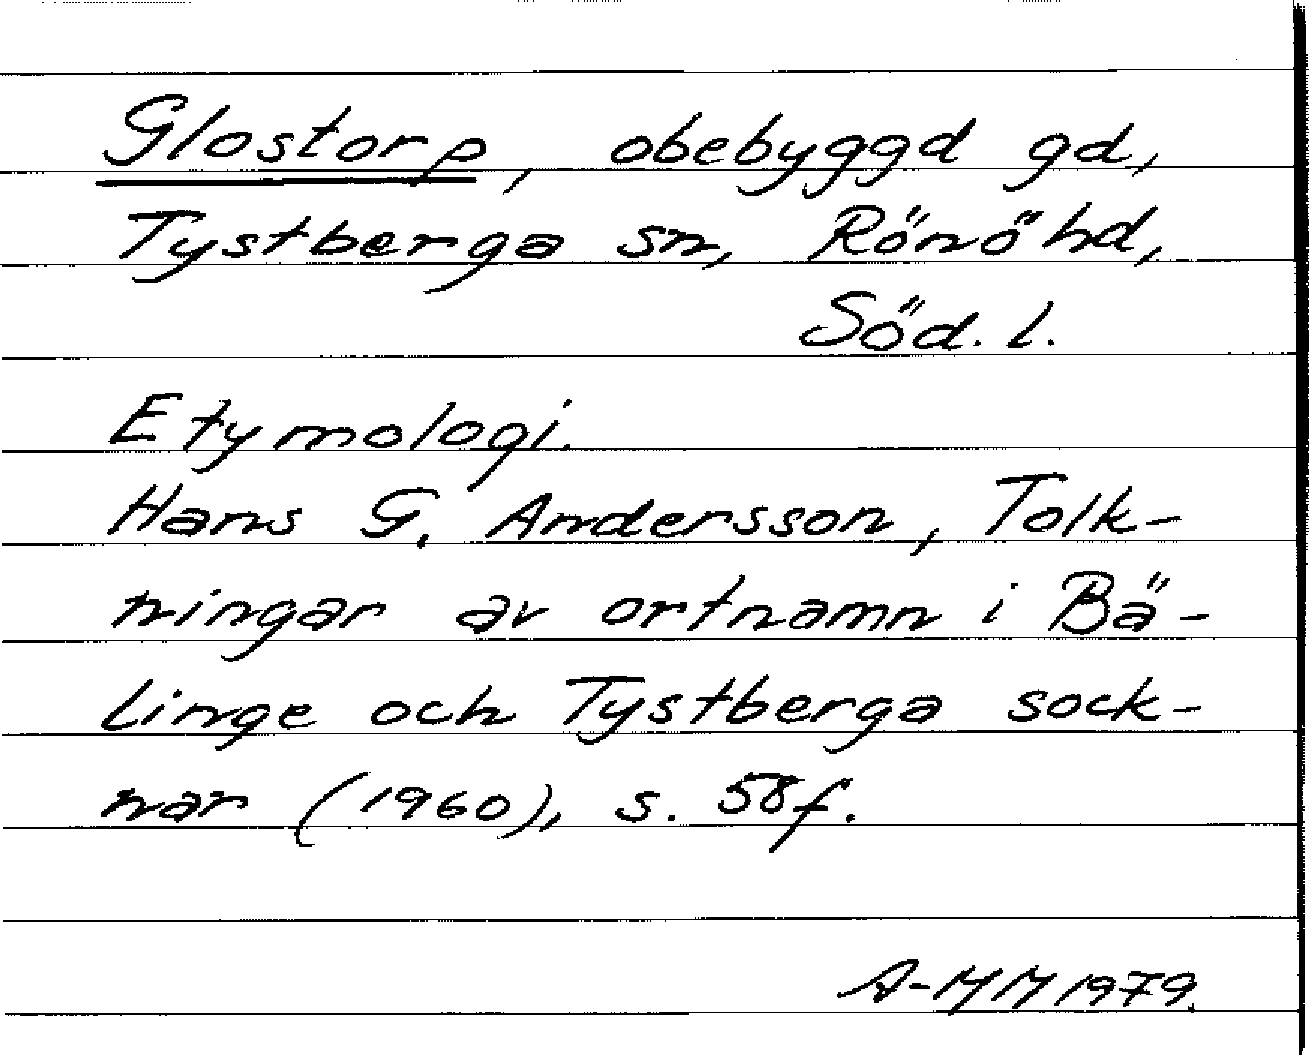 Glostorp, obebyggd gd,
Tystberga sn, Rönö hd,
Söd. l.
Etymologi.
Hans G. Andersson, Tolk-
ningar av ortnamn i Bä-
linge och Tystberga sock-
nar (1960), s. 58f.
A-MM 1979.